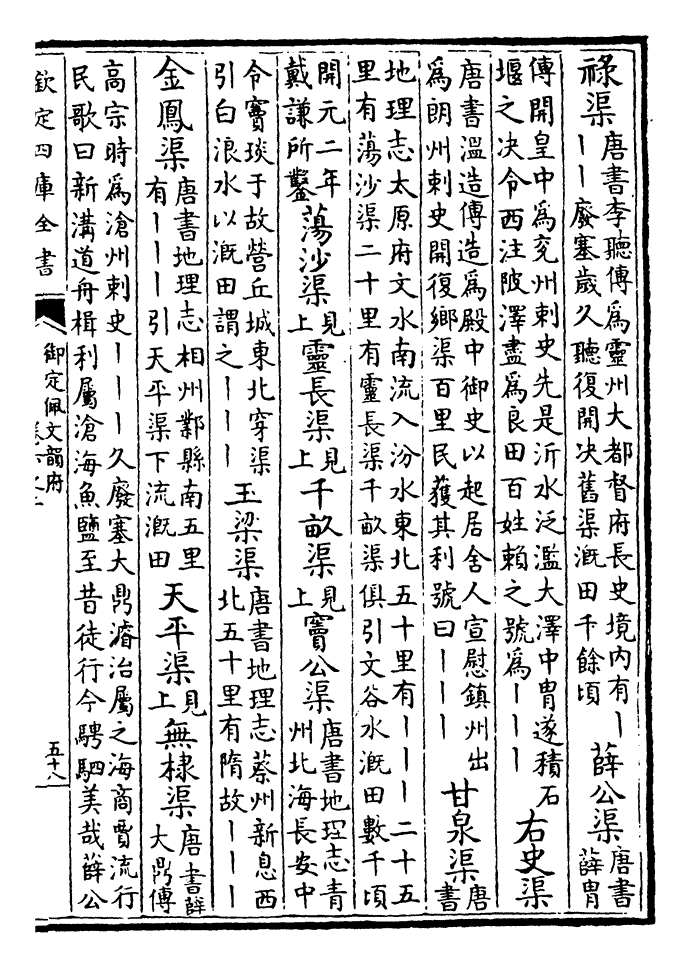 祿渠 唐書李聽傳為靈州大都督府長史境内有丨丨丨廢塞歲久聽復開决舊渠溉田千餘頃 薛公渠 唐書薛胄
傳開皇中為兖州刺史先是沂水泛濫大澤中胄遂積石堰之决令西注陂澤盡為良田百姓賴之號為丨丨丨 右史渠
唐書溫造傳造為殿中御史以起居舍人宣慰鎮州出為朗州刺史開復鄉渠百里民獲其利號曰丨丨丨 甘泉渠 唐書
地理志太原府文水南流入汾水東北五十里有丨丨丨二十五里有蕩沙渠二十里有靈長渠千畝渠俱引文谷水溉田數千頃
開元二年戴謙所鑿 蕩沙渠 見上 靈長渠 見上 千畝渠 見上 竇公渠 唐書地理志青州北海長安中
令竇琰于故營丘城東北穿渠引白浪水以溉田謂之丨丨丨 王梁渠 唐書地理志蔡州新息西北五十里有隋故丨丨丨
金鳳渠 唐書地理志相州鄴縣南五里有丨丨丨引天平渠下流溉田 天平渠 見上 無棣渠 唐書薛大鼎傳
高宗時為滄州刺史丨丨丨久廢塞大鼎濬治屬之海商賈流行民歌曰新溝道舟楫利屬滄海魚鹽至昔徒行今騁駟美哉薛公
欽定四庫全書 御定佩文韻府 五十八